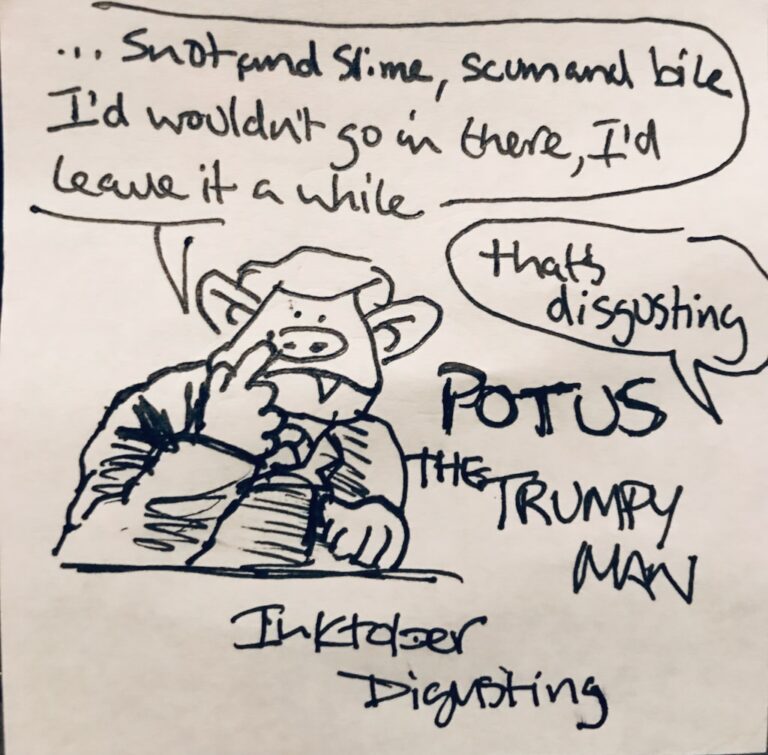 ... Snot and Slime, scum and bile
I'd wouldn't go in there, I'd
leave it a while
that's
disgusting
POTUS
THE
TRUMPY
MAN
Inktober
Digusting